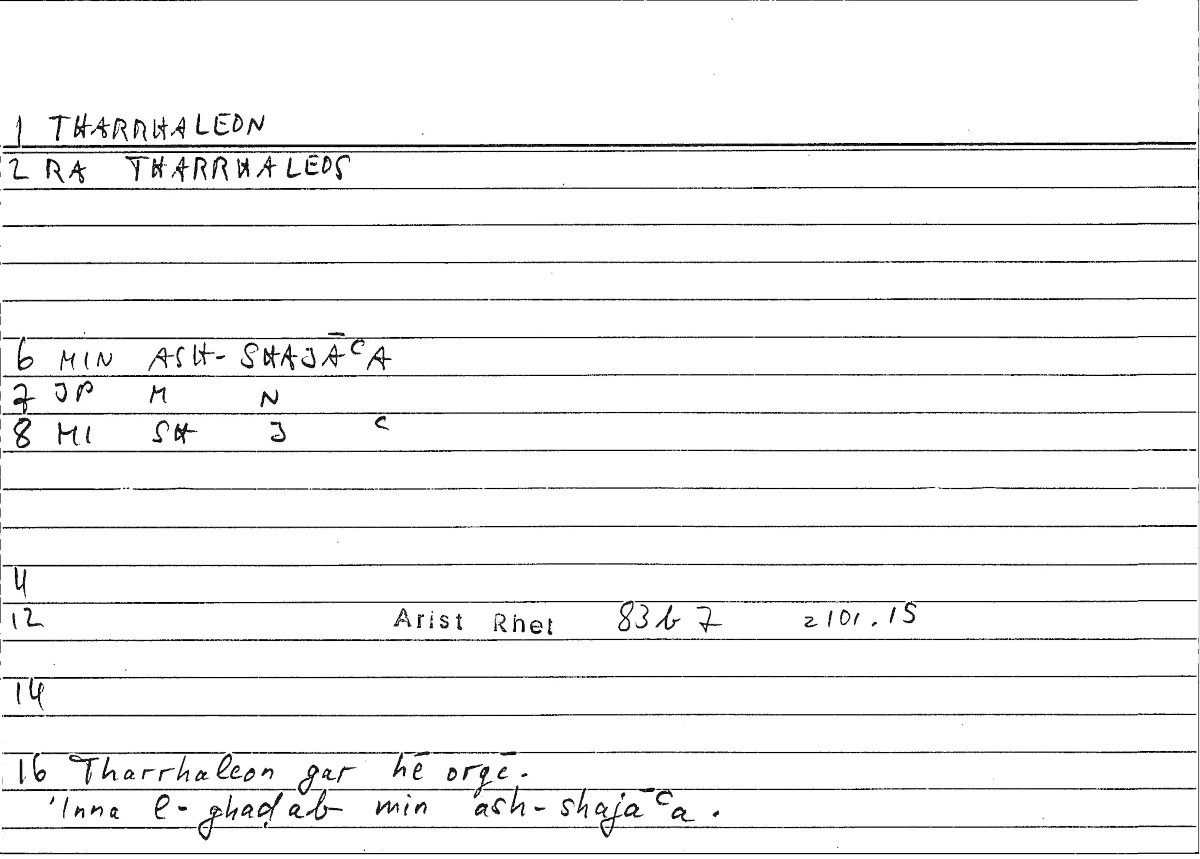 1 THARRHALEON
2 RA THARRHALEOS
6 MIN ASH-SHAJĀᶜA
7 JP M N
8 MI SH J ᶜ
4
12 Arist Rhet 83b7 =101.15
14
16 Tharrhaleon gar hē orgē.
'Inna l-ghaḍab min ash-shajāᶜa.